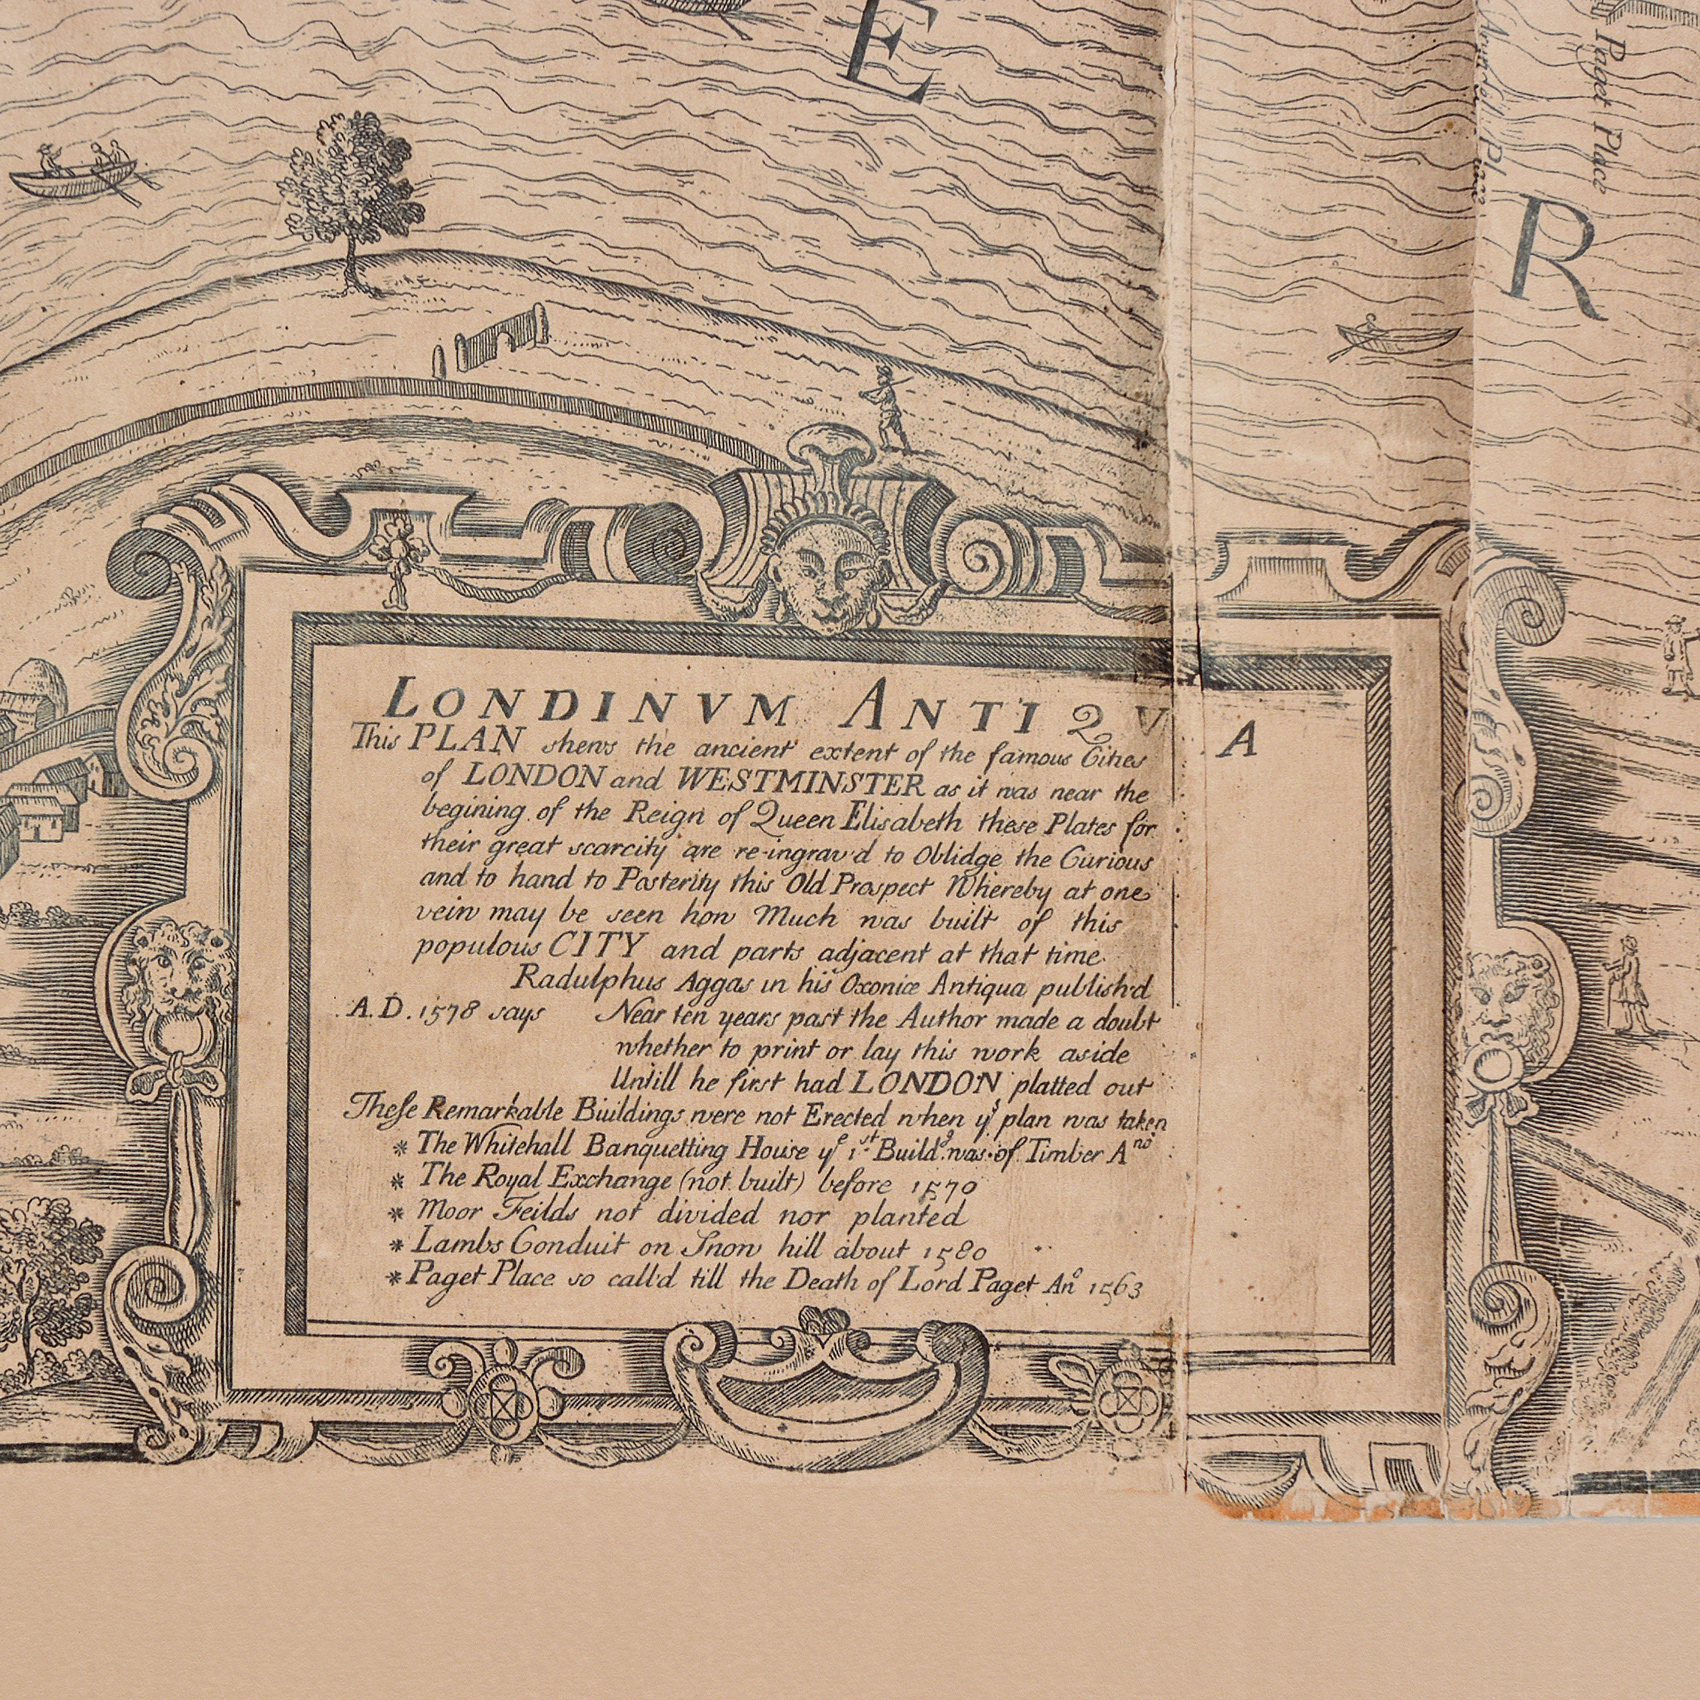 E
Paget Place
Arundell Place
R
LONDINVM ANTIQVA
This PLAN shews the ancient extent of the famous Cities
of LONDON and WESTMINSTER as it was near the
begining of the Reign of Queen Elisabeth these Plates for
their great scarcity are re-ingrav'd to Oblidge the Curious
and to hand to Posterity this Old Prospect Whereby at one
veiw may be seen how Much was built of this
populous CITY and parts adjacent at that time
Radulphus Aggas in his Oxoniæ Antiqua publish'd
A.D. 1578 says Near ten years past the Author made a doubt
whether to print or lay this work aside
Untill he first had LONDON platted out
These Remarkable Buildings were not Erected when yͤ plan was taken
* The Whitehall Banquetting House yᵉ 1ˢᵗ Buildᵍ was of Timber Aⁿᵒ
* The Royal Exchange (not built) before 1570
* Moor Feilds not divided nor planted
* Lambs Conduit on Snow hill about 1580
* Paget Place so call'd till the Death of Lord Paget Anᵒ 1563